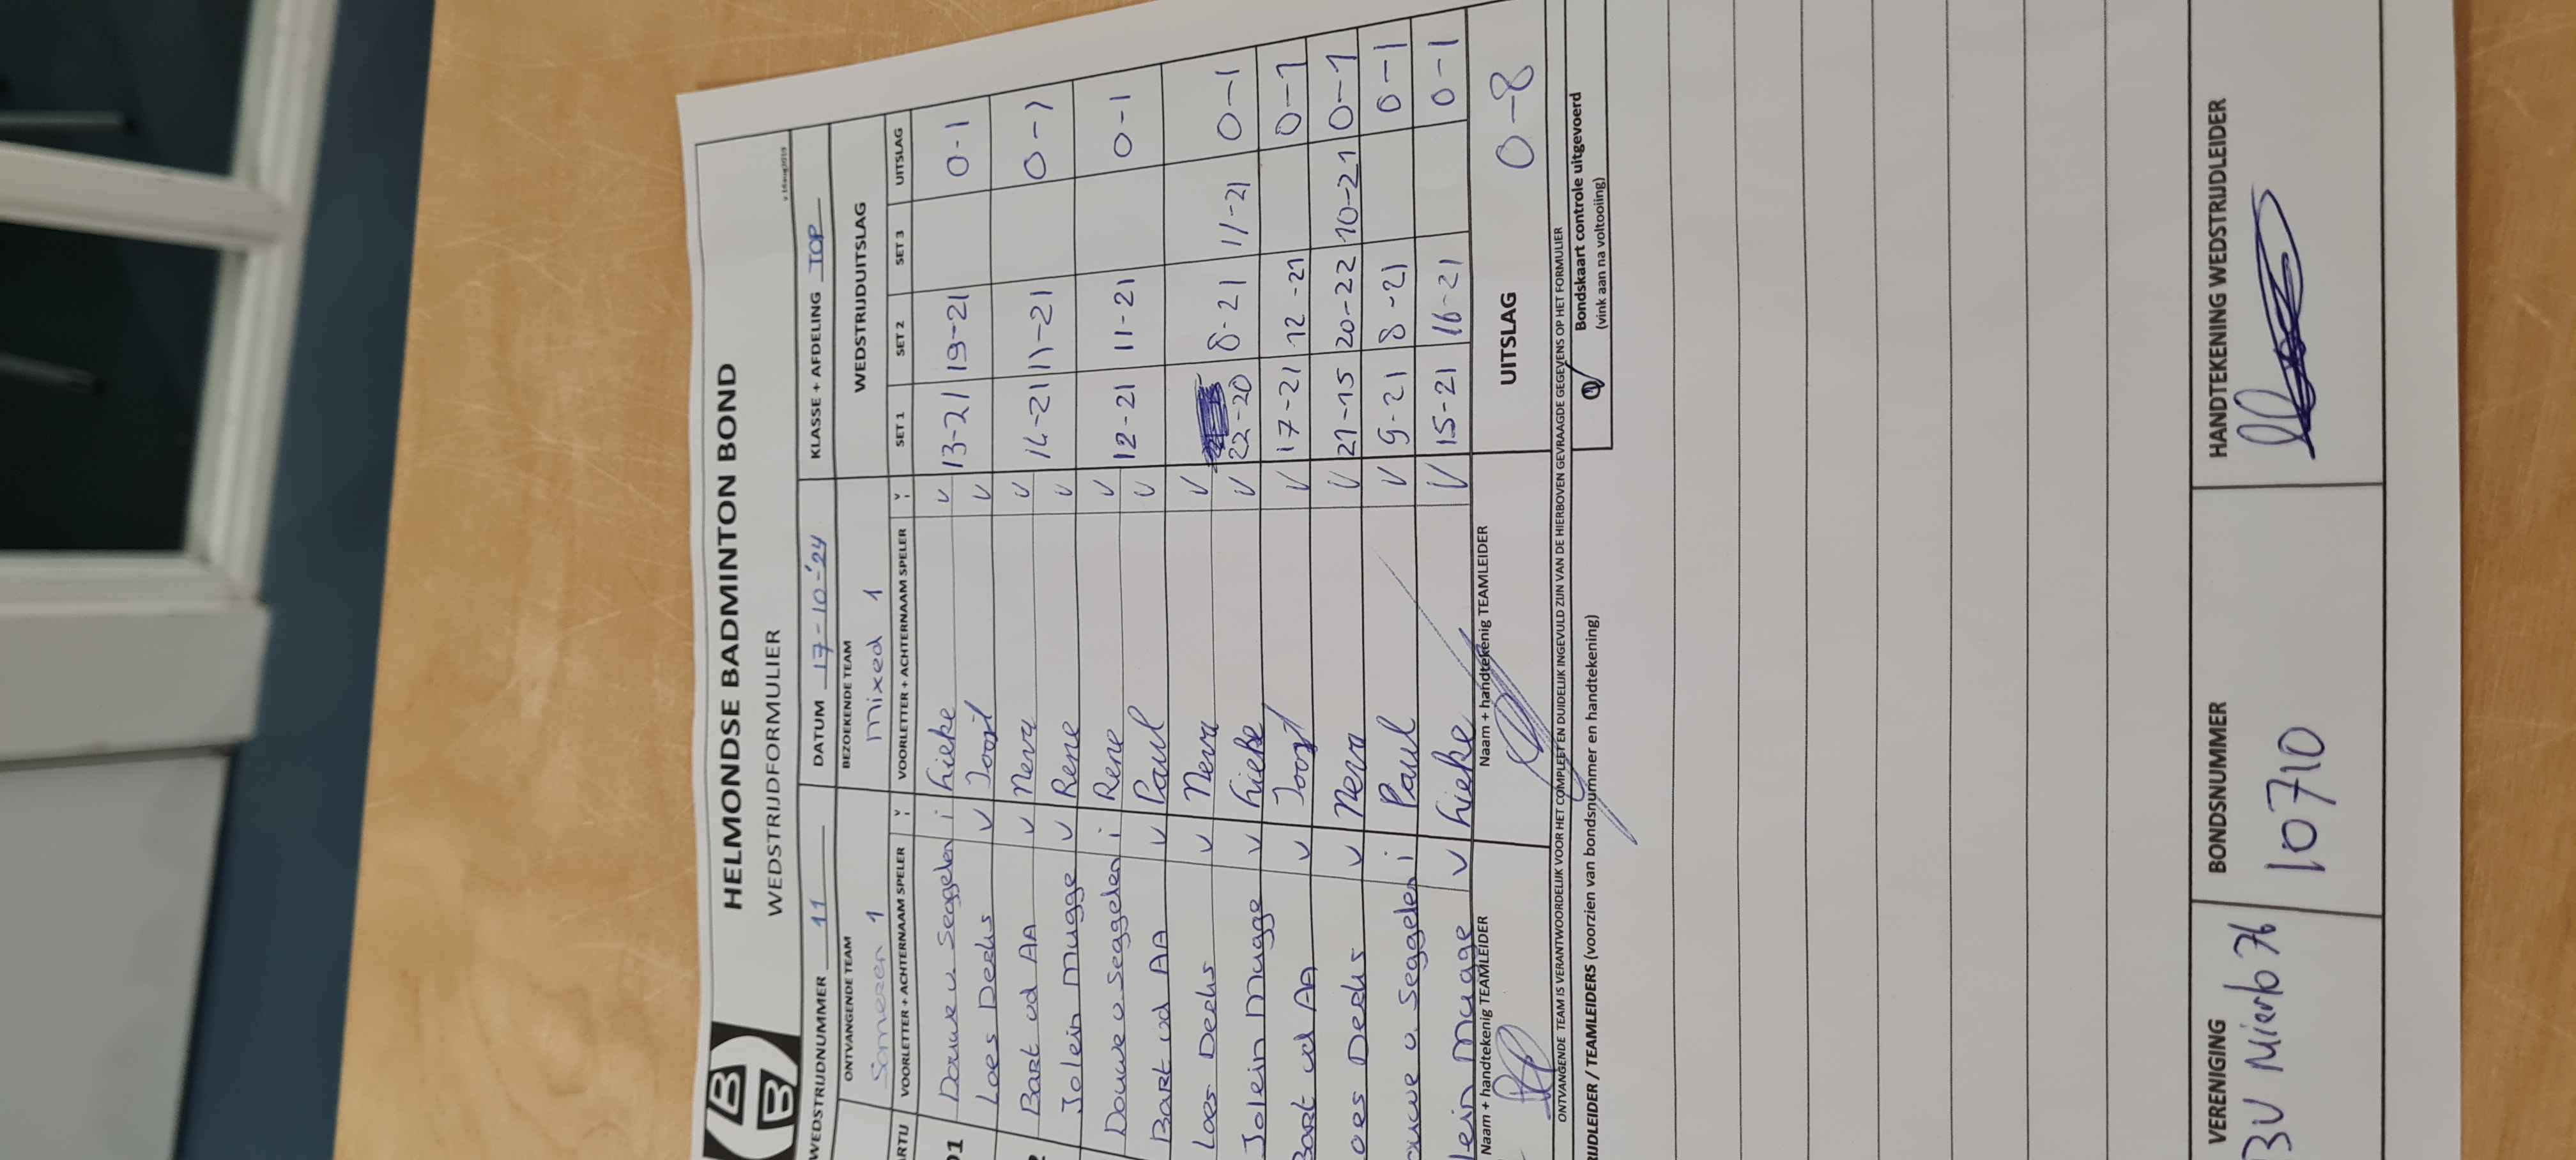 HELMONDSE BADMINTON BOND
WEDSTRIJDFORMULIER
v.16aug2019
WEDSTRIJDNUMMER 11 DATUM 17-10-'24 KLASSE + AFDELING TOP
ONTVANGENDE TEAM BEZOEKENDE TEAM WEDSTRIJDUITSLAG
Someren 1 mixed 1
ARTIJ VOORLETTER + ACHTERNAAM SPELER V VOORLETTER + ACHTERNAAM SPELER V SET 1 SET 2 SET 3 UITSLAG
D1 Douwe v Seggelen i Lieke v 13-21 19-21 0-1
Loes Derks v Joost v
Bart vd AA v Nerva v 14-21 11-21 0-1
Jolein Mugge v Rene v
Douwe v. Seggelen i Rene v 12-21 11-21 0-1
Bart vd AA v Paul v
Loes Derks v Nerva v
Jolein Mugge v Lieke v 22-20 8-21 11-21 0-1
Bart vd AA v Joost v 17-21 12-21 0-1
oes Derks v Nerva v 21-15 20-22 10-21 0-1
ouwe v. Seggelen i Paul v 9-21 8-21 0-1
lein Mugge v Lieke v 15-21 16-21 0-1
Naam + handtekenig TEAMLEIDER Naam + handtekenig TEAMLEIDER UITSLAG 0-8
ONTVANGENDE TEAM IS VERANTWOORDELIJK VOOR HET COMPLEET EN DUIDELIJK INGEVULD ZIJN VAN DE HIERBOVEN GEVRAAGDE GEGEVENS OP HET FORMULIER
RIJDLEIDER / TEAMLEIDERS (voorzien van bondsnummer en handtekening) Bondskaart controle uitgevoerd
(vink aan na voltooiing)
VERENIGING BONDSNUMMER HANDTEKENING WEDSTRIJDLEIDER
BV Mierlo 76 10710